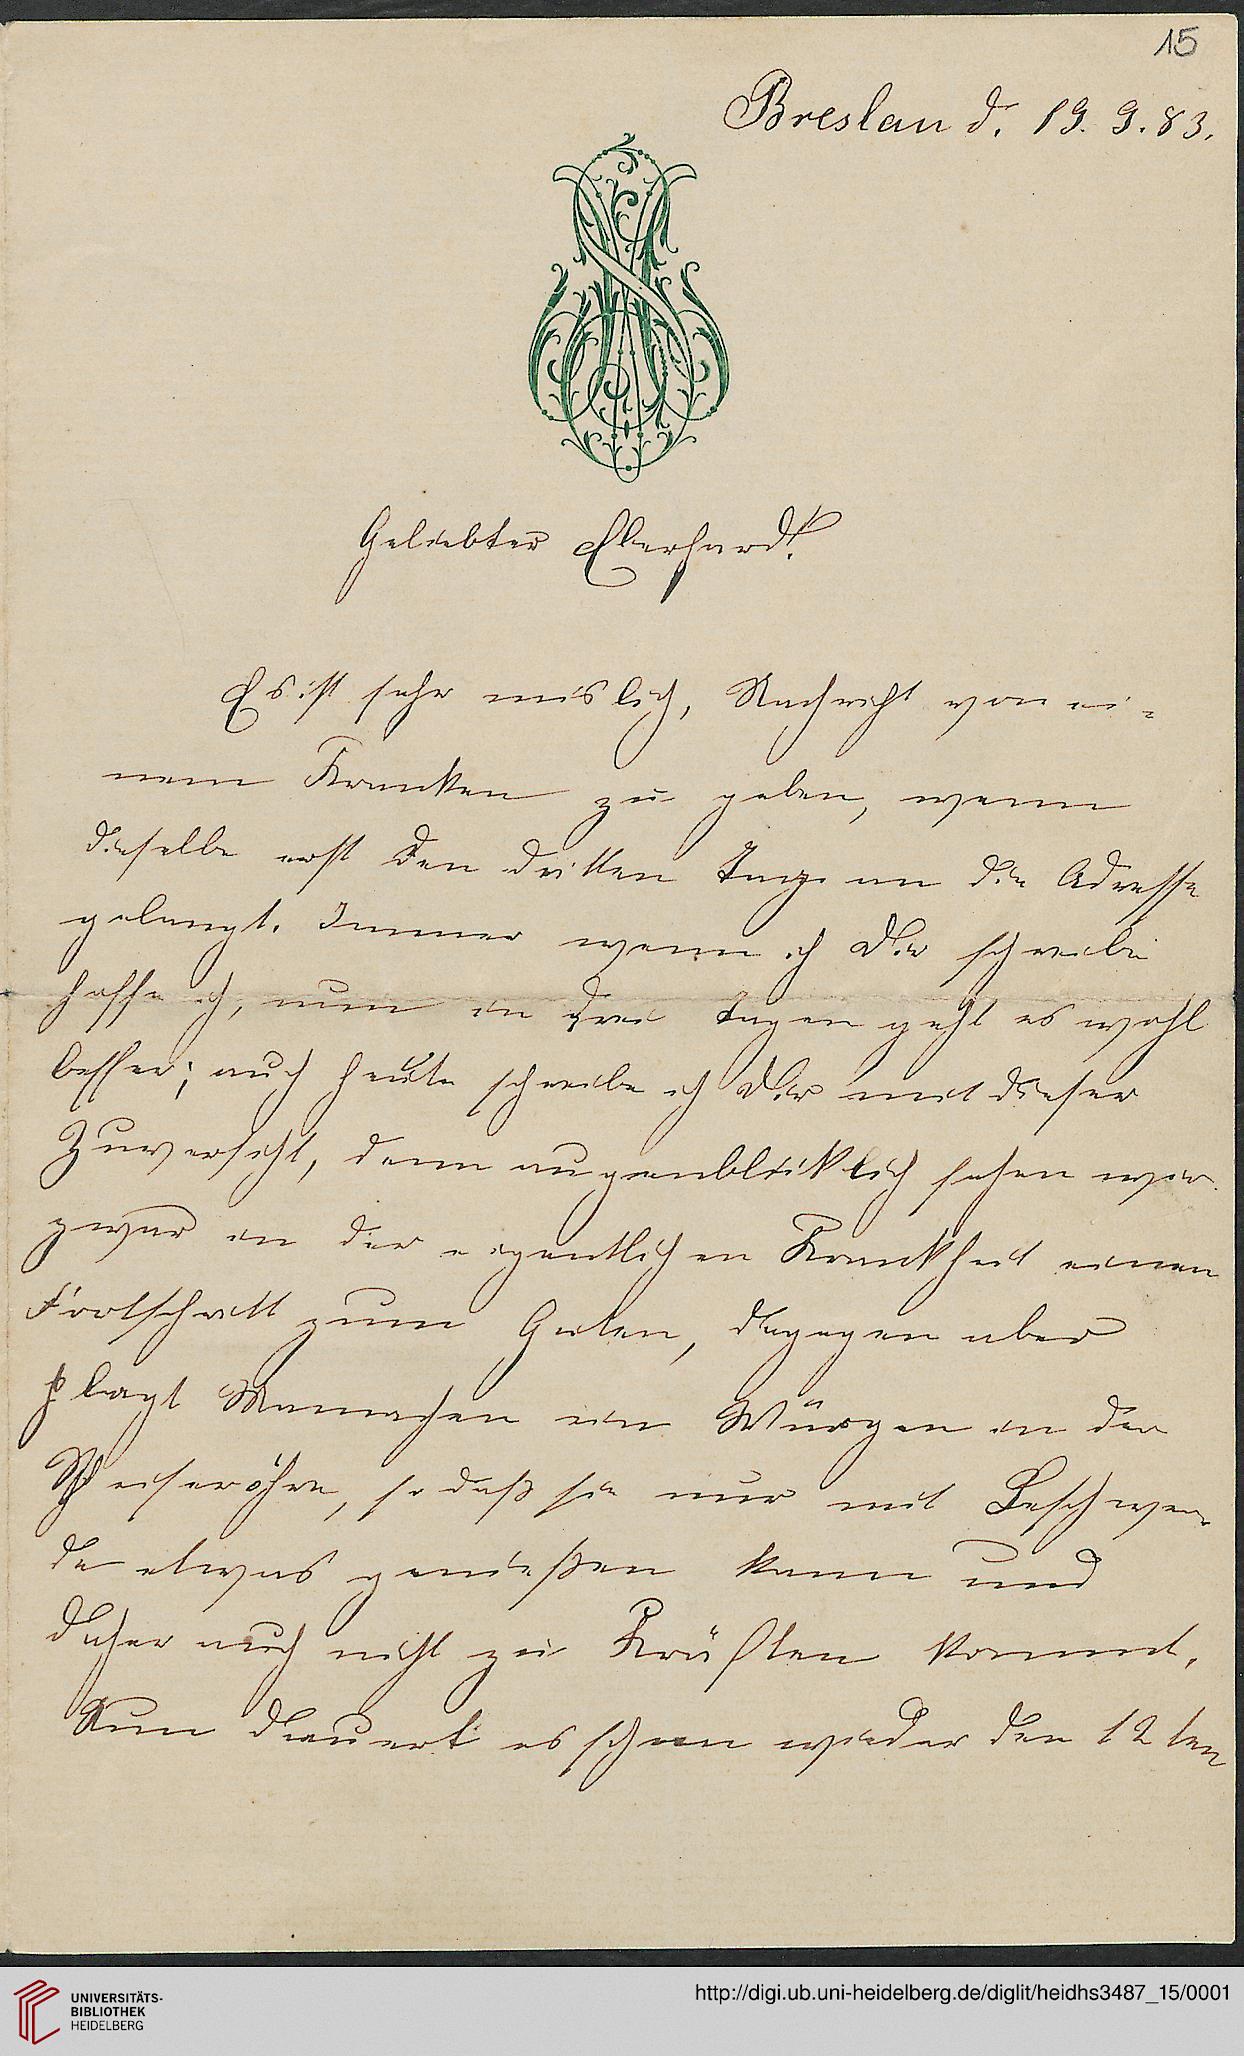 15
Breslau d. 19. 9. 83.
Geliebter Eberhard!
Es ist sehr mislich, Nachricht von ei-
nem Kranken zu geben, wenn
dieselbe erst den dritten Tag an die Adresse
gelangt. Immer wenn ich Dir schreibe
hoffe ich, nun in drei Tagen geht es wohl
besser; auch heute schreibe ich Dir mit dieser
Zuversicht, denn augenblicklich sehen wir
zwar in der eigentlichen Krankheit einen
Fortschritt zum Guten, dagegen aber
plagt Mamachen ein Würgen in der
Speiseröhre, so daß sie nur mit Beschwer-
de etwas genießen kann und
daher auch nicht zu Kräften kommt.
Nun dauert es schon wieder den 12 ten
UNIVERSITÄTS-
BIBLIOTHEK
HEIDELBERG
http://digi.ub.uni-heidelberg.de/diglit/heidhs3487_15/0001